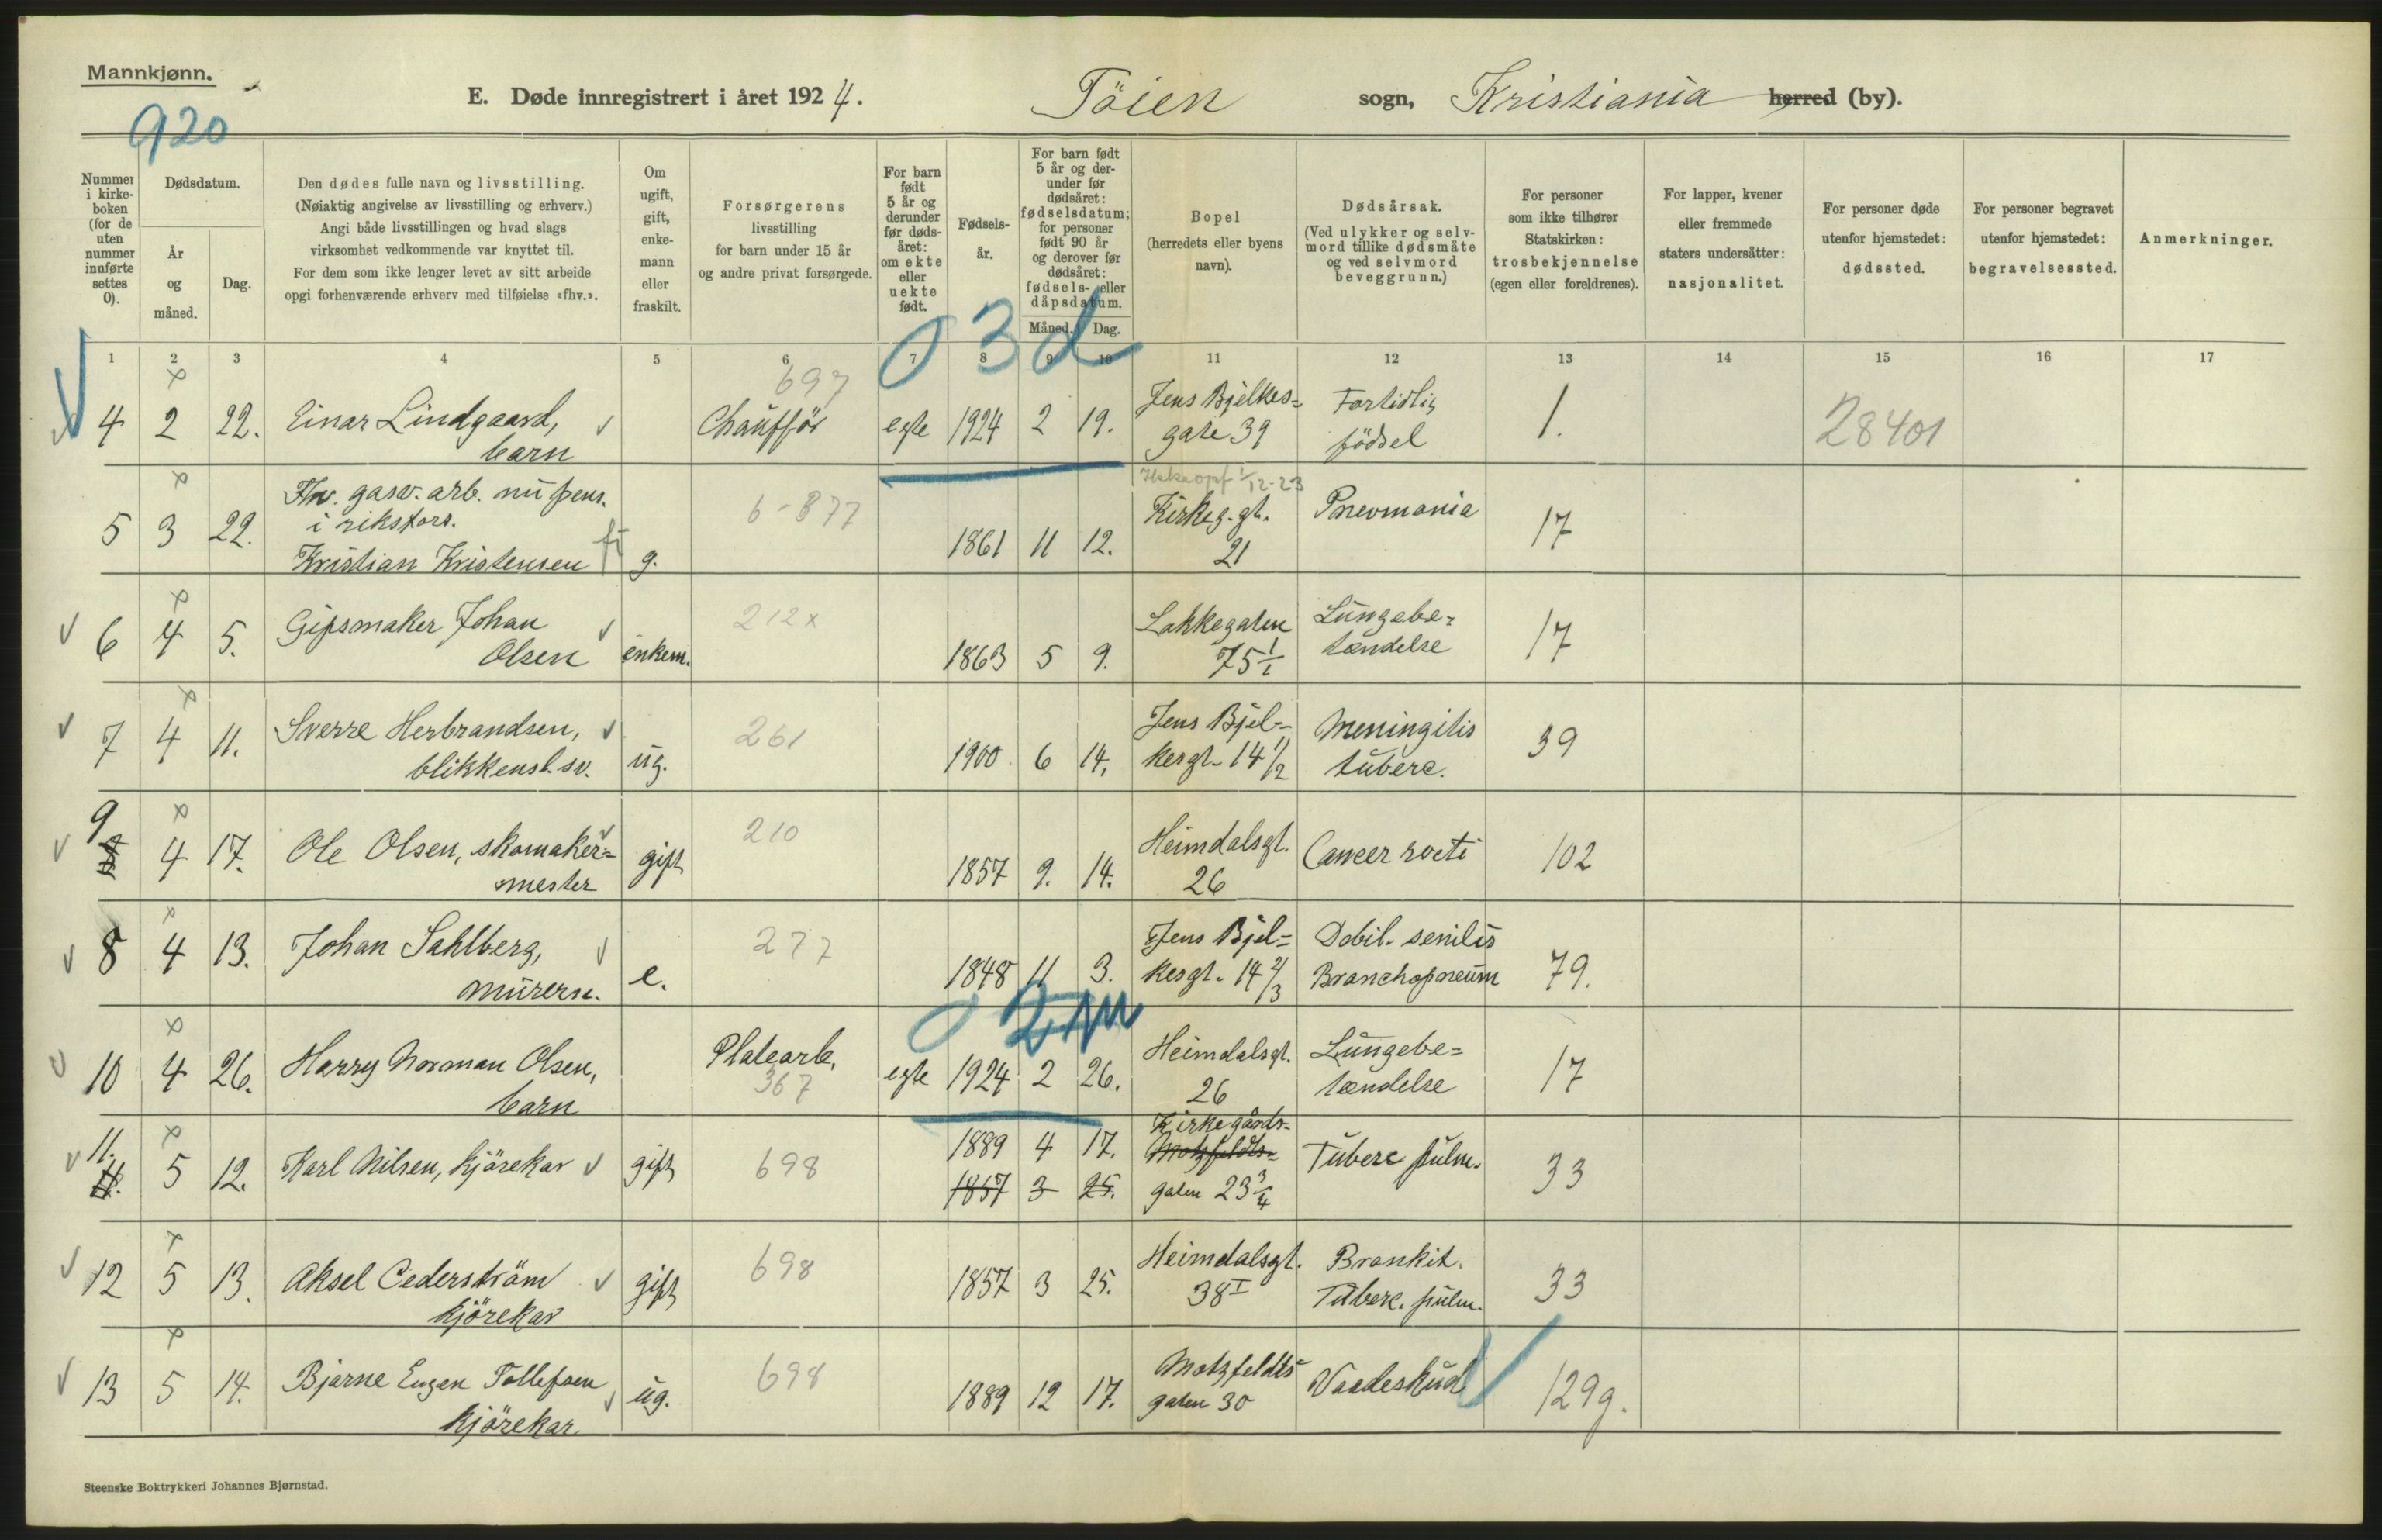 Mannkjønn.
E. Døde innregistrert i året 1924. Töien sogn, Kristiania herred (by).
920
Nummer i kirke-boken (for de uten nummer innførte settes 0).
Dødsdatum.
År og måned.
Dag.
Den dødes fulle navn og livsstilling.
(Nøiaktig angivelse av livsstilling og erhverv.)
Angi både livsstillingen og hvad slags
virksomhet vedkommende var knyttet til.
For dem som ikke lenger levet av sitt arbeide
opgi forhenværende erhverv med tilføielse «fhv.».
Om ugift, gift, enke-mann eller fraskilt.
Forsørgerens
livsstilling
for barn under 15 år
og andre privat forsørgede.
For barn født 5 år og derunder før døds-året: om ekte eller uekte født.
Fødsels-år.
For barn født 5 år og der-under før dødsåret: fødselsdatum; for personer født 90 år og derover før dødsåret: fødsels- eller dåpsdatum.
Måned. Dag.
Bopel
(herredets eller byens
navn).
Dødsårsak.
(Ved ulykker og selv-
mord tillike dødsmåte
og ved selvmord
beveggrunn.)
For personer
som ikke tilhører
Statskirken:
trosbekjennelse
(egen eller foreldrenes).
For lapper, kvener
eller fremmede
staters undersåtter:
nasjonalitet.
For personer døde
utenfor hjemstedet:
dødssted.
For personer begravet
utenfor hjemstedet:
begravelsessted.
Anmerkninger.
0 3 d
1 2 3 4 5 6 7 8 9 10 11 12 13 14 15 16 17
697
4 2 22. Einar Lindgaard, barn Chaufför egte 1924 2 19. Jens Bjelkes= gate 39 Fortidlig födsel 1. 28401
5 3 22. Fhv. gasv. arb. nu pens. i riksfors. Kristian Kristensen g. 6-877 1861 11 12. 1/12-23 Kirkeg. gt. 21 Pneomonia 17
6 4 5. Gipsmaker Johan Olsen enkem. 212x 1863 5 9. Lakkegaten 75 1/1 Lungebe= tændelse 17
7 4 11. Sverre Herbrandsen, blikkensl. sv. ug. 261 1900 6 14. Jens Bjel= kesgt. 14 1/2 Meningitis tuberc. 39
9 4 17. Ole Olsen, skomaker= mester gift 210 1857 9. 14. Heimdalsgt. 26 Cancer recti 102
8 4 13. Johan Sahlberg, murersv. e. 277 1848 11 3. Jens Bjel= kesgt. 14 2/3 Debil. senilis Bronchopneum 79.
0 2 m
10 4 26. Harry Norman Olsen, barn Platearb. 367 egte 1924 2 26. Heimdalsgt. 26 Lungebe= tændelse 17
11. 11. 5 12. Karl Nilsen, kjörekar gift 698 1889 4 17. 1857 3 25. Kirkegårds= Motzfeldts= gaten 23 3/4 Tuberc pulm. 33
12 5 13. Aksel Cederström kjörekar gift 698 1857 3 25. Heimdalsgt. 38 I Bronkit. Tuberc. pulm. 33
13 5 14. Bjarne Eugen Tollefsen kjörekar ug. 698 1889 12 17. Motzfeldts gaten 30 Vaadeskud 129g.
Steenske Boktrykkeri Johannes Bjørnstad.